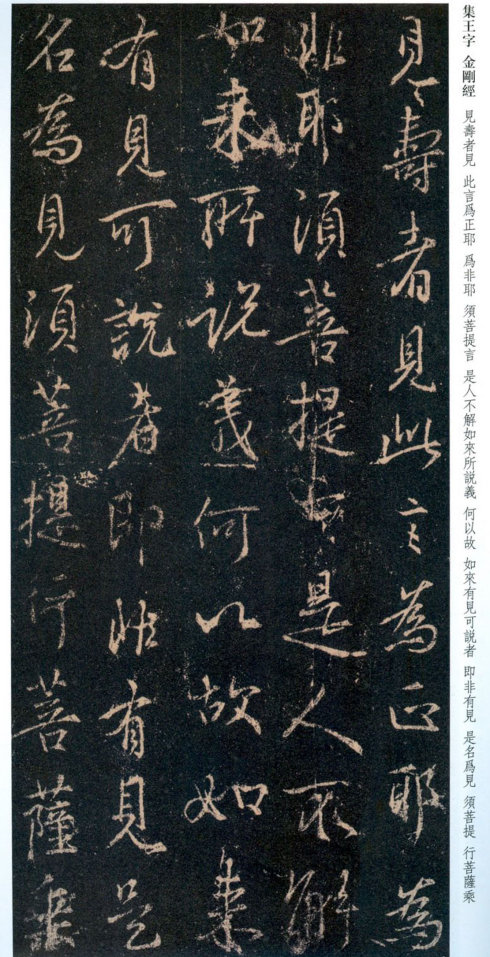 集王字 金剛經 見壽者見 此言爲正耶 爲非耶 須菩提言 是人不解如來所説義 何以故 如來有見可説者 即非有見 是名爲見 須菩提 行菩薩乘
見々壽者見此言為正耶為
非耶須菩提言是人不解
如來所說義何以故如來
有見可說者即非有見是
名為見須菩提行菩薩乘